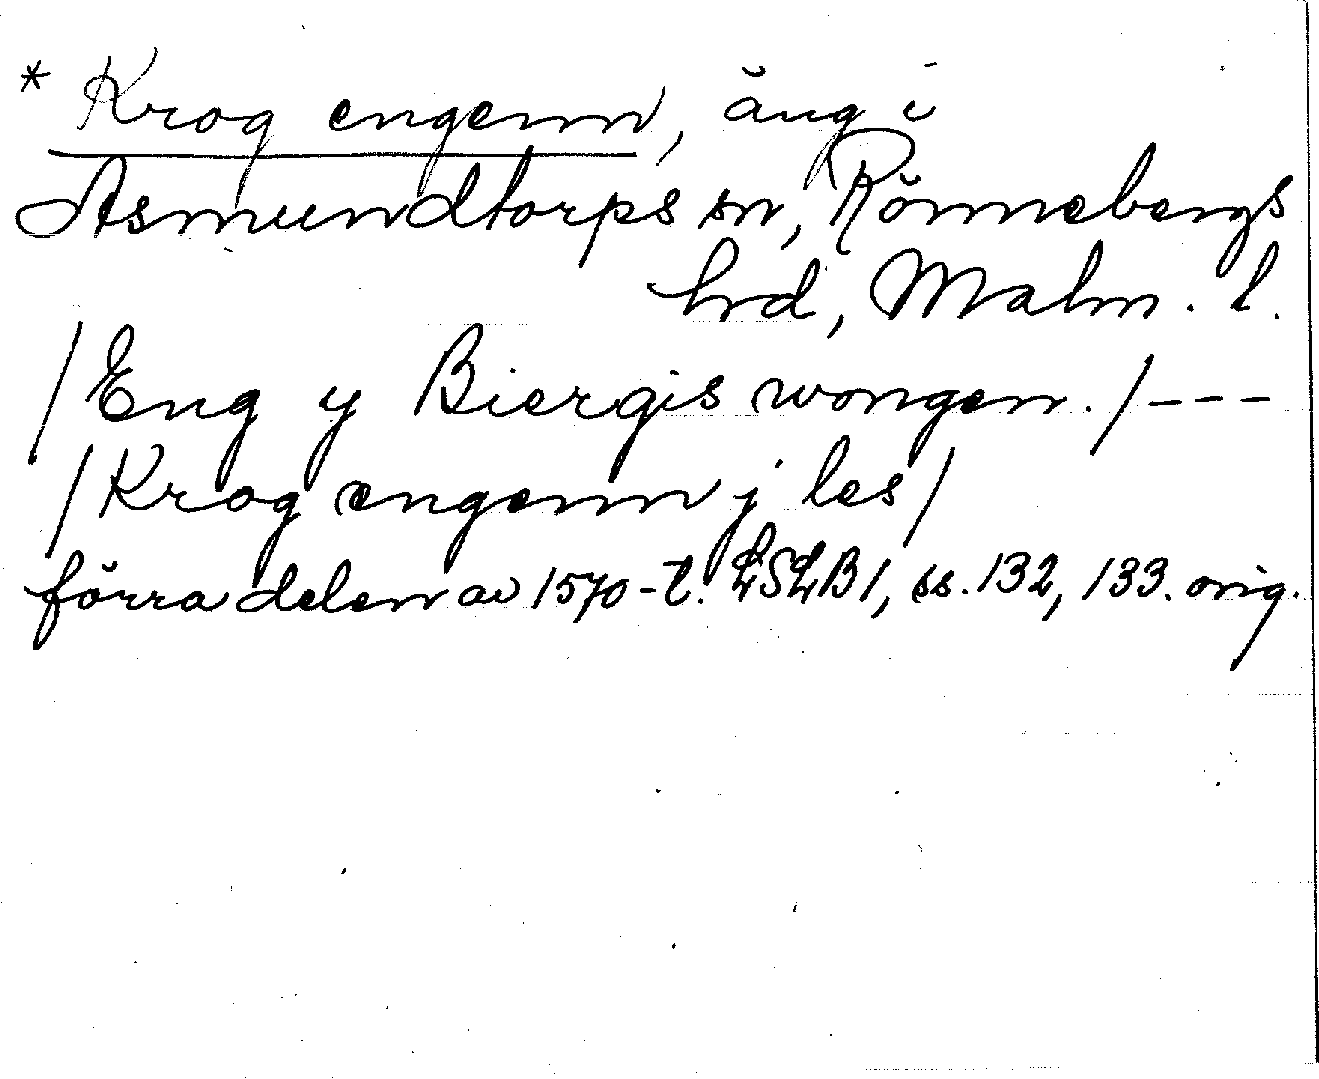 * Krog engenn, äng i
Asmundtorps sn, Rönnebergs
hrd, Malm. l.
/Eng y Biergis wongen./---
/Krog engenn j les/
förra delen av 1570-t. LSLB1, ss. 132, 133. orig.